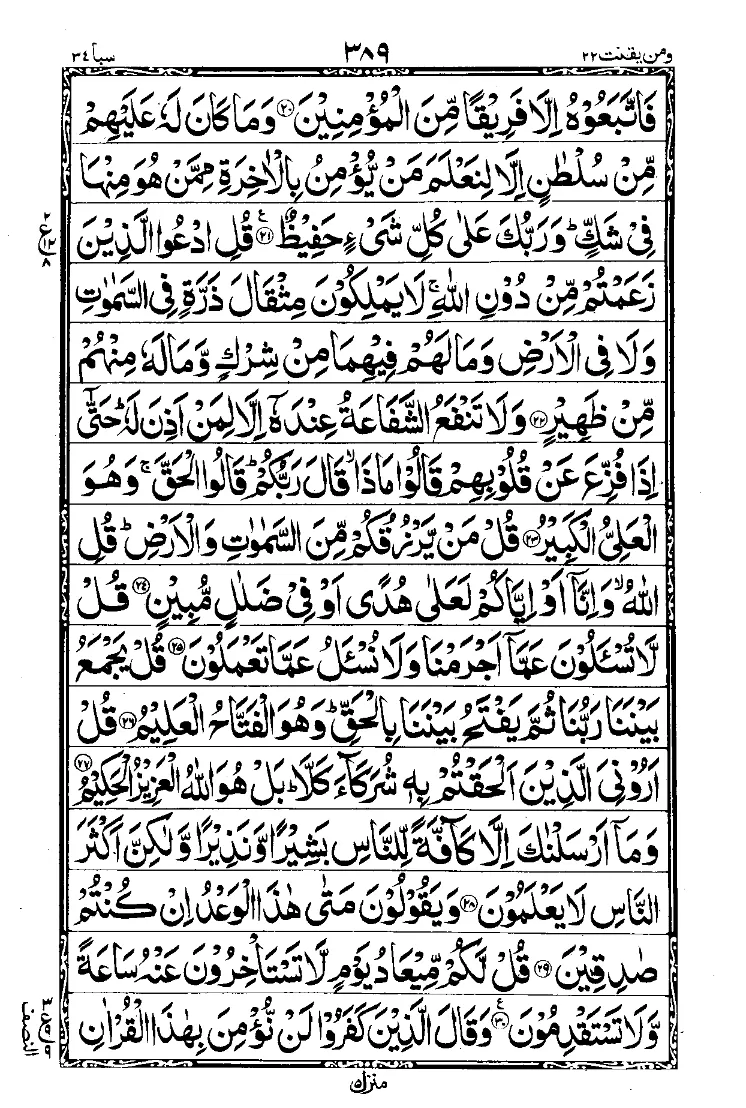 ومن یقنت ۲۲
۳۸۹
سبا ۳٤
فَاتَّبَعُوْهُ اِلَّا فَرِیْقًا مِّنَ الْمُؤْمِنِیْنَ ۲۰ وَمَا كَانَ لَهٗ عَلَیْهِمْ
مِّنْ سُلْطٰنٍ اِلَّا لِنَعْلَمَ مَنْ یُّؤْمِنُ بِالْاٰخِرَةِ مِمَّنْ هُوَ مِنْهَا
فِیْ شَكٍّ ؕ وَرَبُّكَ عَلٰی كُلِّ شَیْءٍ حَفِیْظٌ ۲۱ قُلِ ادْعُوا الَّذِیْنَ
زَعَمْتُمْ مِّنْ دُوْنِ اللّٰهِ ۚ لَا یَمْلِكُوْنَ مِثْقَالَ ذَرَّةٍ فِی السَّمٰوٰتِ
وَلَا فِی الْاَرْضِ وَمَا لَهُمْ فِیْهِمَا مِنْ شِرْكٍ وَّمَا لَهٗ مِنْهُمْ
مِّنْ ظَهِیْرٍ ۲۲ وَلَا تَنْفَعُ الشَّفَاعَةُ عِنْدَهٗۤ اِلَّا لِمَنْ اَذِنَ لَهٗ ؕ حَتّٰۤی
اِذَا فُزِّعَ عَنْ قُلُوْبِهِمْ قَالُوْا مَاذَا ۙ قَالَ رَبُّكُمْ ؕ قَالُوا الْحَقَّ ۚ وَهُوَ
الْعَلِیُّ الْكَبِیْرُ ۲۳ قُلْ مَنْ یَّرْزُقُكُمْ مِّنَ السَّمٰوٰتِ وَالْاَرْضِ ؕ قُلِ
اللّٰهُ ۙ وَاِنَّاۤ اَوْ اِیَّاكُمْ لَعَلٰی هُدًی اَوْ فِیْ ضَلٰلٍ مُّبِیْنٍ ۲٤ قُلْ
لَّا تُسْـَٔلُوْنَ عَمَّاۤ اَجْرَمْنَا وَلَا نُسْـَٔلُ عَمَّا تَعْمَلُوْنَ ۲۵ قُلْ یَجْمَعُ
بَیْنَنَا رَبُّنَا ثُمَّ یَفْتَحُ بَیْنَنَا بِالْحَقِّ ؕ وَهُوَ الْفَتَّاحُ الْعَلِیْمُ ۲۶ قُلْ
اَرُوْنِیَ الَّذِیْنَ اَلْحَقْتُمْ بِهٖ شُرَكَآءَ كَلَّا ؕ بَلْ هُوَ اللّٰهُ الْعَزِیْزُ الْحَكِیْمُ ۲۷
وَمَاۤ اَرْسَلْنٰكَ اِلَّا كَآفَّةً لِّلنَّاسِ بَشِیْرًا وَّنَذِیْرًا وَّلٰكِنَّ اَكْثَرَ
النَّاسِ لَا یَعْلَمُوْنَ ۲۸ وَیَقُوْلُوْنَ مَتٰی هٰذَا الْوَعْدُ اِنْ كُنْتُمْ
صٰدِقِیْنَ ۲۹ قُلْ لَّكُمْ مِّیْعَادُ یَوْمٍ لَّا تَسْتَاْخِرُوْنَ عَنْهُ سَاعَةً
وَّلَا تَسْتَقْدِمُوْنَ ۳۰ وَقَالَ الَّذِیْنَ كَفَرُوْا لَنْ نُّؤْمِنَ بِهٰذَا الْقُرْاٰنِ
النصف
منزل ۵